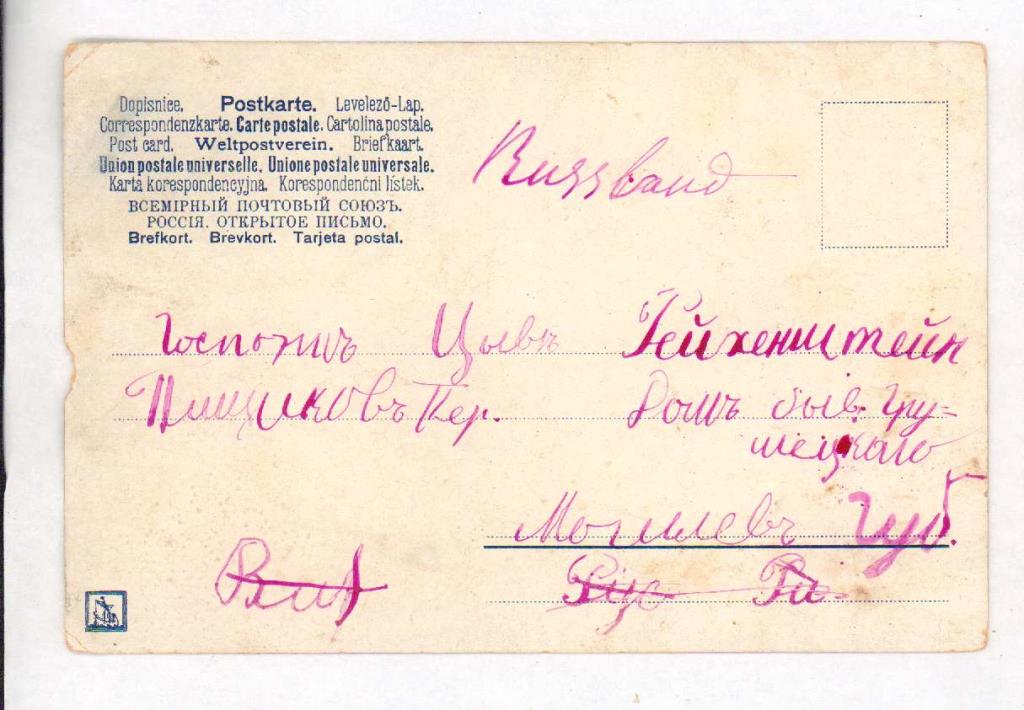 Dopisnice. Postkarte. Levelező-Lap.
Correspondenzkarte. Carte postale. Cartolina postale.
Post card. Weltpostverein. Briefkaart.
Union postale universelle. Unione postale universale.
Karta korespondencyjna. Korespondenční lístek.
ВСЕМІРНЫЙ ПОЧТОВЫЙ СОЮЗЪ.
РОССІЯ. ОТКРЫТОЕ ПИСЬМО.
Brefkort. Brevkort. Tarjeta postal.
Russland
Госпожѣ Цывѣ Гейхенштейн
Пер. Домъ быв. Гру-
шецкаго
Могилевъ Губ.